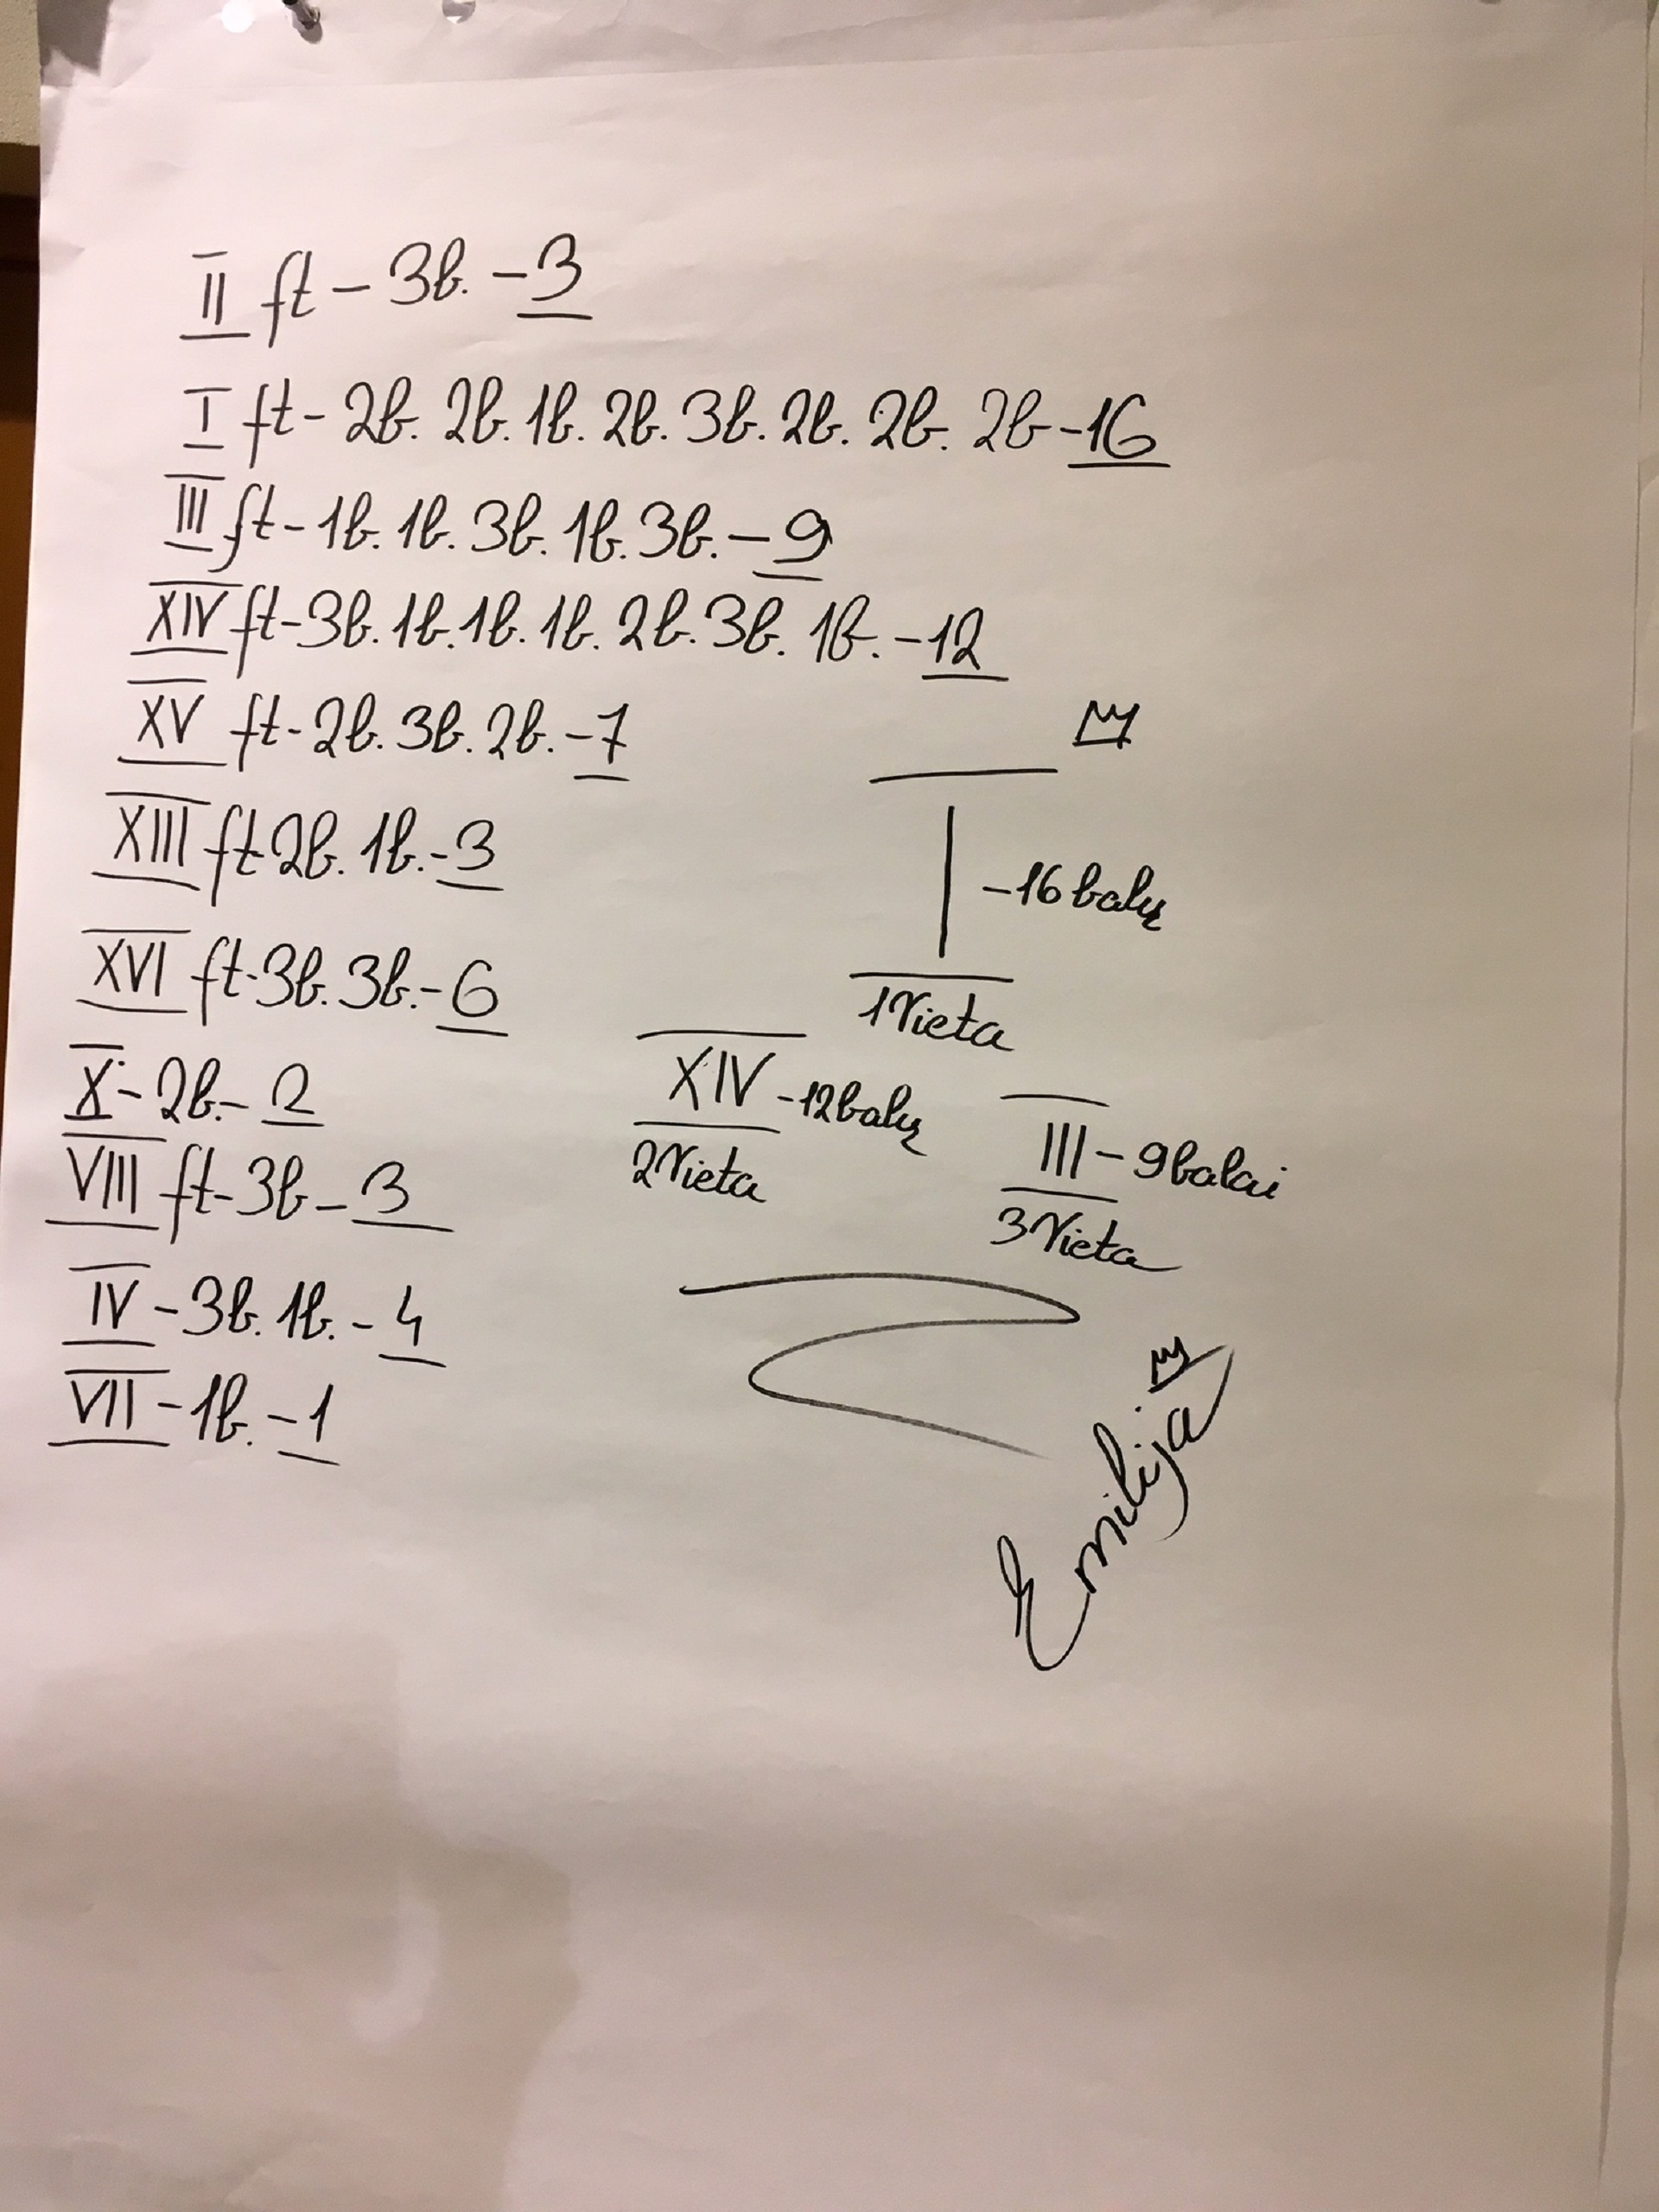 II ft - 3b. - 3
I ft - 2b. 2b. 1b. 2b. 3b. 2b. 2b. 2b - 16
III ft - 1b. 1b. 3b. 1b. 3b. - 9
XIV ft - 3b. 1b. 1b. 1b. 2b. 3b. 1b. - 12
XV ft - 2b. 3b. 2b. - 7
XIII ft 2b. 1b. - 3
XVI ft - 3b. 3b. - 6
X - 2b. - 2
VIII ft - 3b - 3
IV - 3b. 1b. - 4
VII - 1b. - 1
I - 16 balų
1 Vieta
XIV - 12 balų
2 Vieta
III - 9 balai
3 Vieta
Emilija